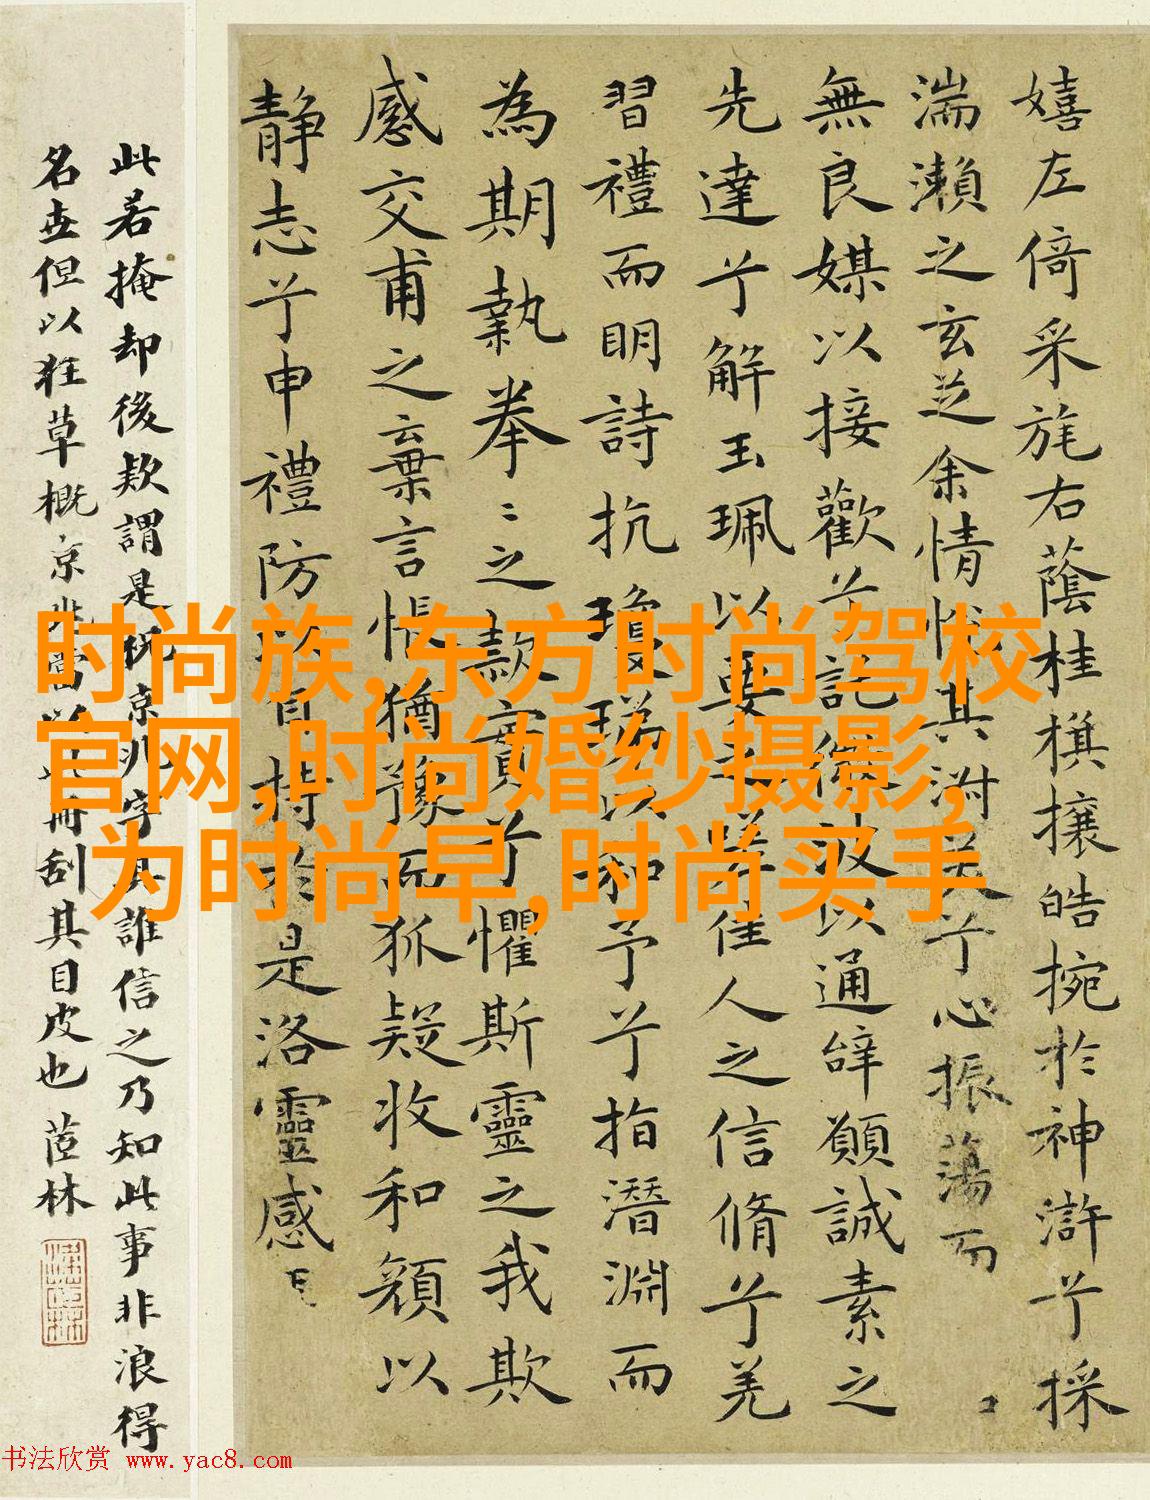 嬉左倚采旄右蔭桂旗攘皓捥於神滸兮採
湍瀨之玄芝余情悅其淑美兮心振蕩而
無良媒以接歡兮託微波以通辭願誠素之
先達兮解玉珮以要之嗟佳人之信脩兮羌
習禮而明詩抗瓊珶以和予兮兮指潛淵而
為期執拳〻之款實兮懼斯靈之我欺
感交甫之棄言悵猶豫而狐疑收和顏以
靜志兮申禮防以自持於是洛靈感
此若掩却後款謂是祝京兆字其誰信之乃知此事非浪得
名世但以狂草概京兆當以此冊刮其目皮也 茝林
时尚族,东方时尚驾校
官网,时尚婚纱摄影,
为时尚早,时尚买手
书法欣赏 www.yac8.com